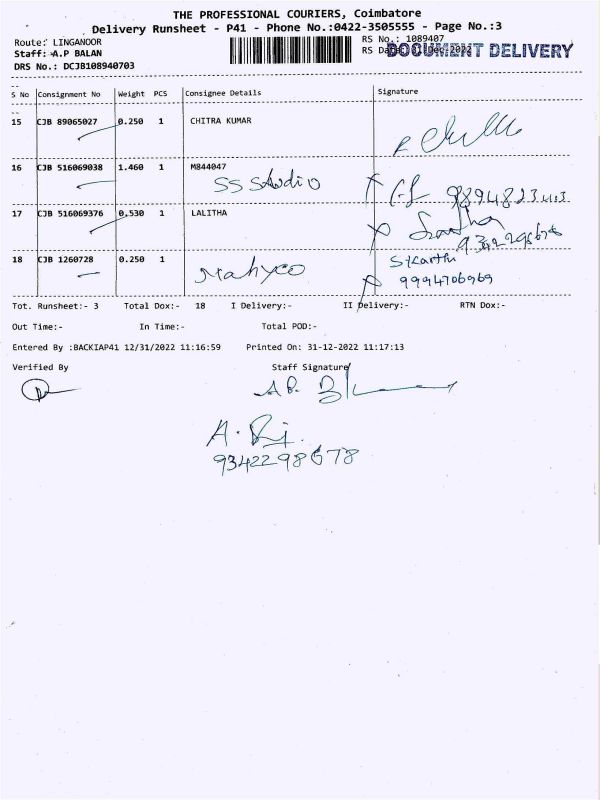 THE PROFESSIONAL COURIERS, Coimbatore
Delivery Runsheet - P41 - Phone No.:0422-3505555 - Page No.:3
Route: LINGANOOR
RS No.: 1089407
Staff: A.P BALAN
RS Da
DOCUMENT DELIVERY
DRS No.: DCJB108940703
S No Consignment No Weight PCS Consignee Details Signature
15 CJB 89065027 0.250 1 CHITRA KUMAR
16 CJB 516069038 1.460 1 M844047
SS Studio
17 CJB 516069376 0.530 1 LALITHA
18 CJB 1260728 0.250 1
Mahyco
S/Karthi
9994706969
Tot. Runsheet:- 3 Total Dox:- 18 I Delivery:- II Delivery:- RTN Dox:-
Out Time:- In Time:- Total POD:-
Entered By :BACKIAP41 12/31/2022 11:16:59 Printed On: 31-12-2022 11:17:13
Verified By Staff Signature
9342298678